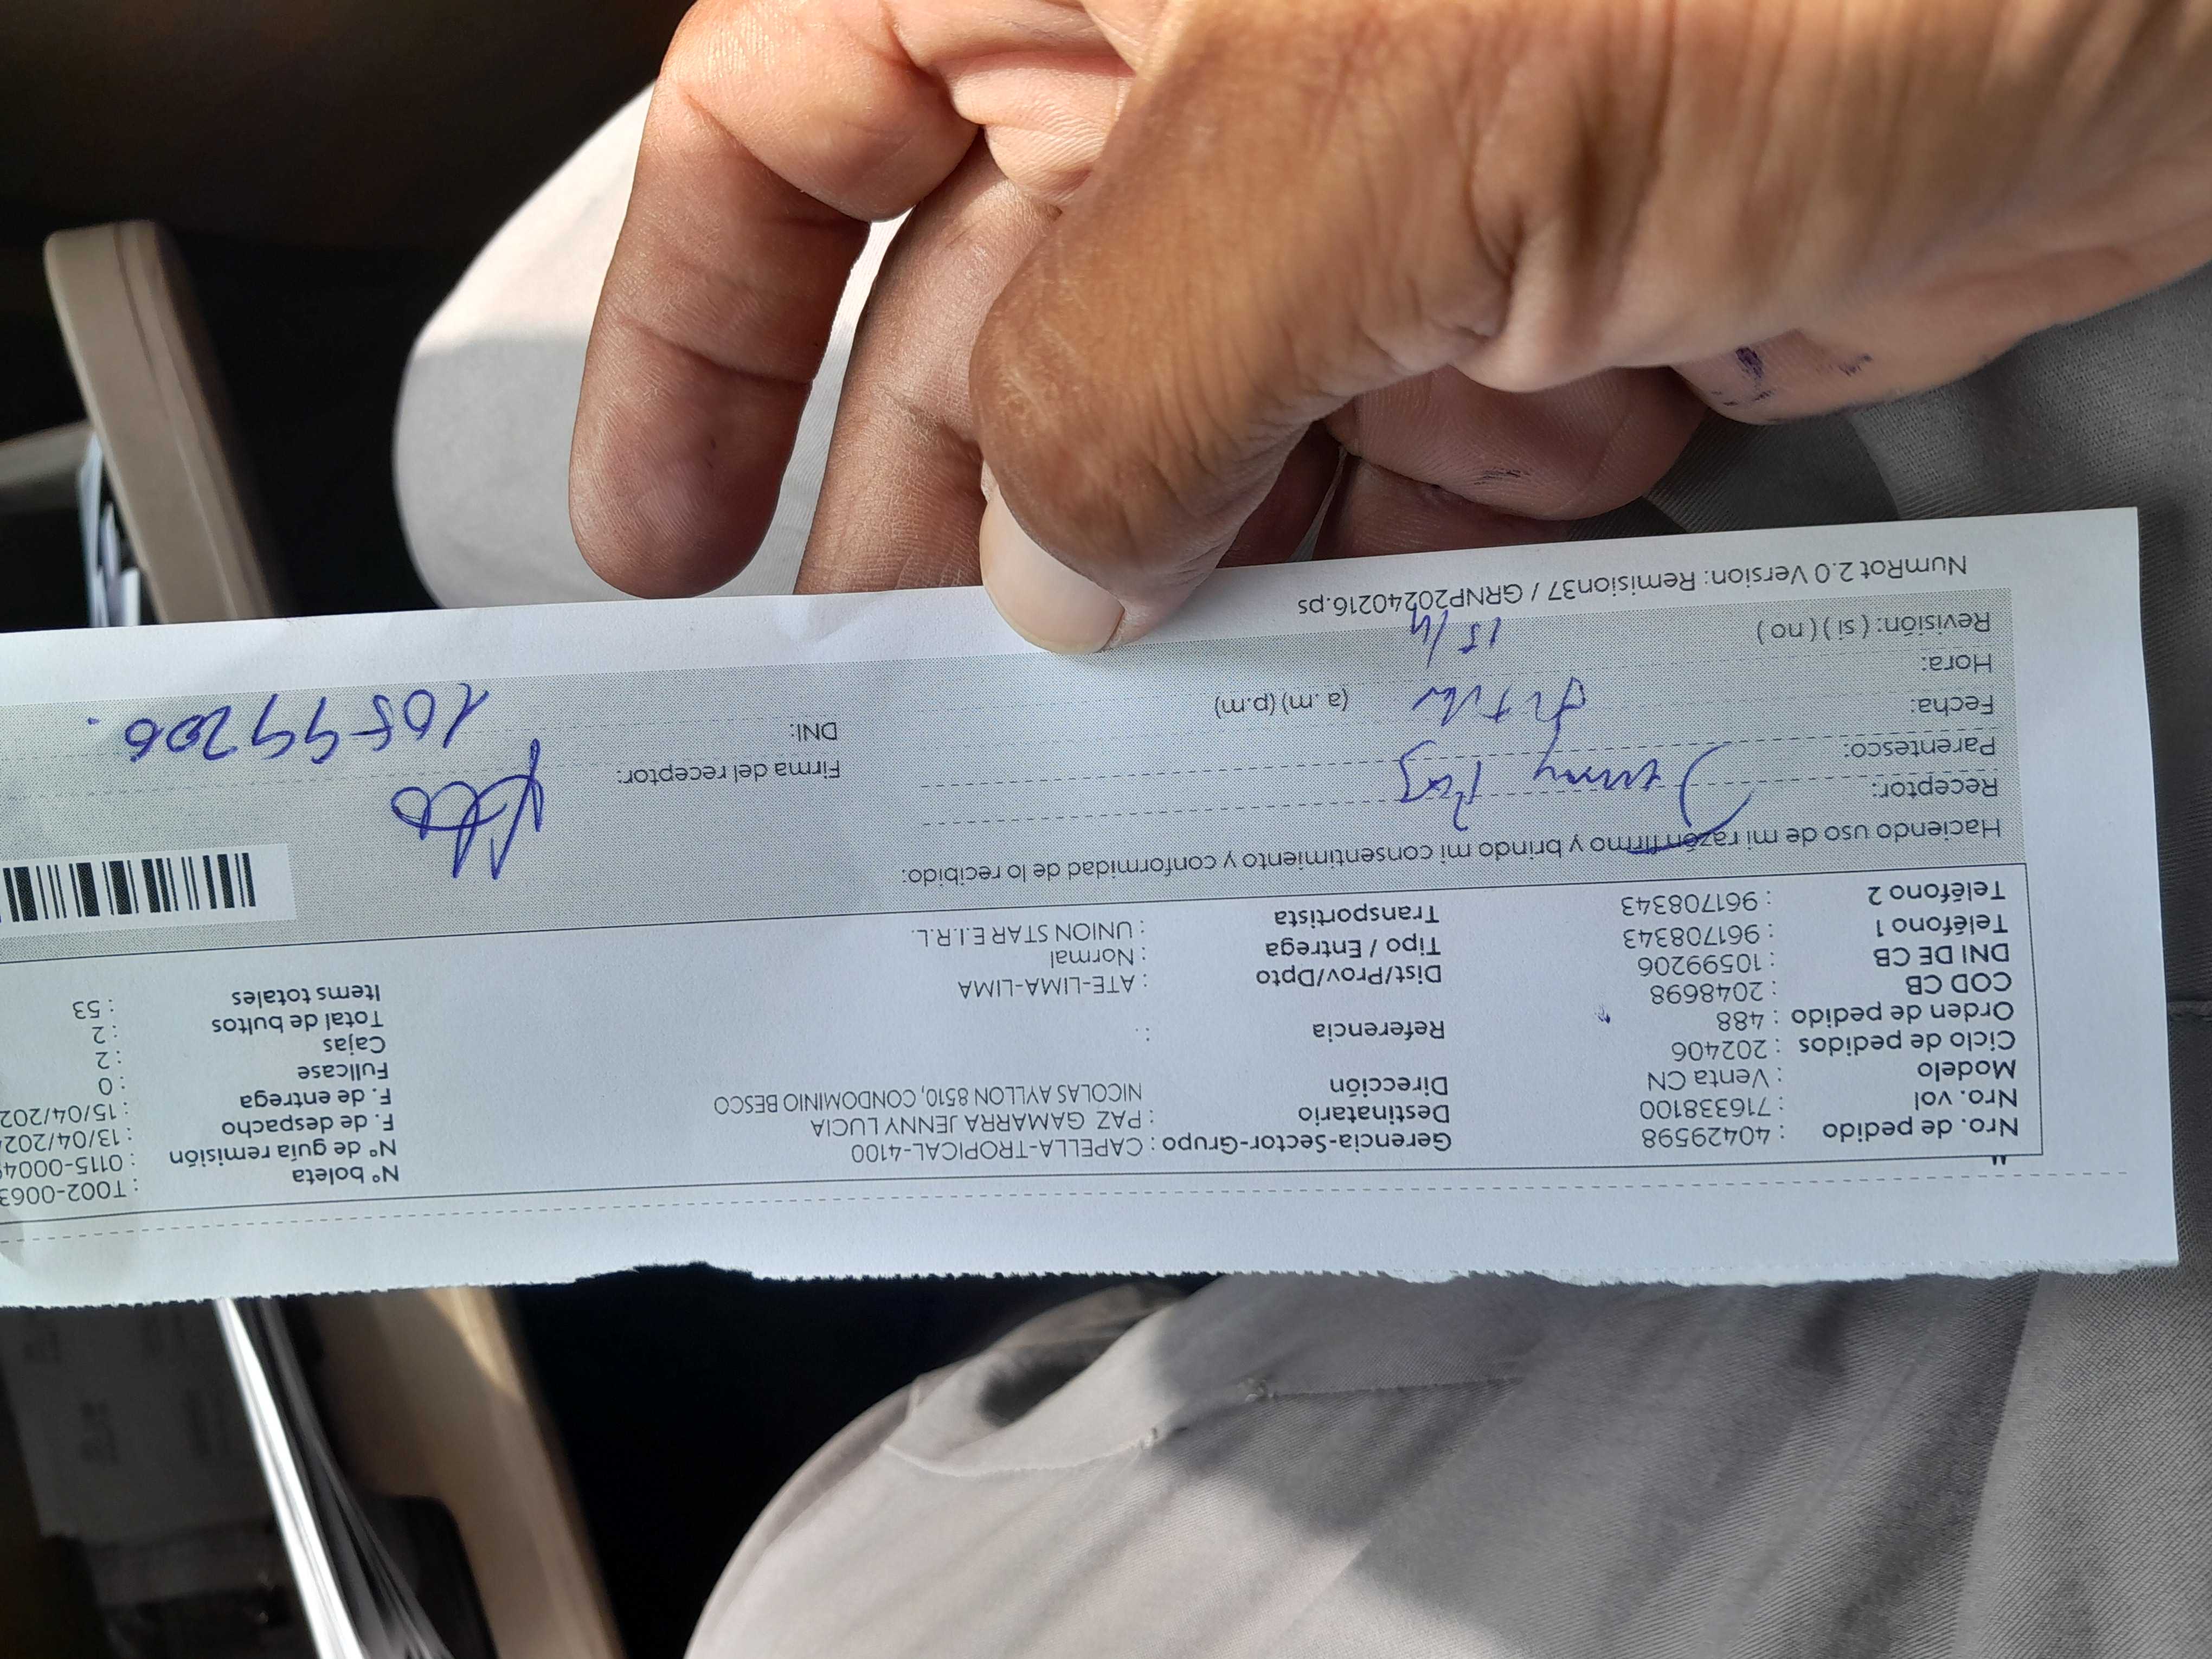 Nro. de pedido : 40429598
Nro. vol : 716338100
Modelo : Venta CN
Ciclo de pedidos : 202406
Orden de pedido : 488
COD CB : 2048698
DNI DE CB : 10599206
Teléfono 1 : 961708343
Teléfono 2 : 961708343
Gerencia-Sector-Grupo : CAPELLA-TROPICAL-4100
Destinatario : PAZ GAMARRA JENNY LUCIA
Dirección NICOLAS AYLLON 8510, CONDOMINIO BESCO
Referencia : .
Dist/Prov/Dpto : ATE-LIMA-LIMA
Tipo / Entrega : Normal
Transportista : UNION STAR E.I.R.L.
N° boleta : T002-0063
N° de guía remisión : 0115-0004
F. de despacho : 13/04/202
F. de entrega : 15/04/202
Fullcase : 0
Cajas : 2
Total de bultos : 2
Items totales : 53
Haciendo uso de mi razón firmo y brindo mi consentimiento y conformidad de lo recibido:
Receptor: Jenny Paz
Parentesco:
Fecha:
Hora: (a. m) (p.m)
Revisión: ( si ) ( no ) 15/4
Firma del receptor:
DNI: 10599206.
NumRot 2.0 Version: Remision37 / GRNP20240216.ps